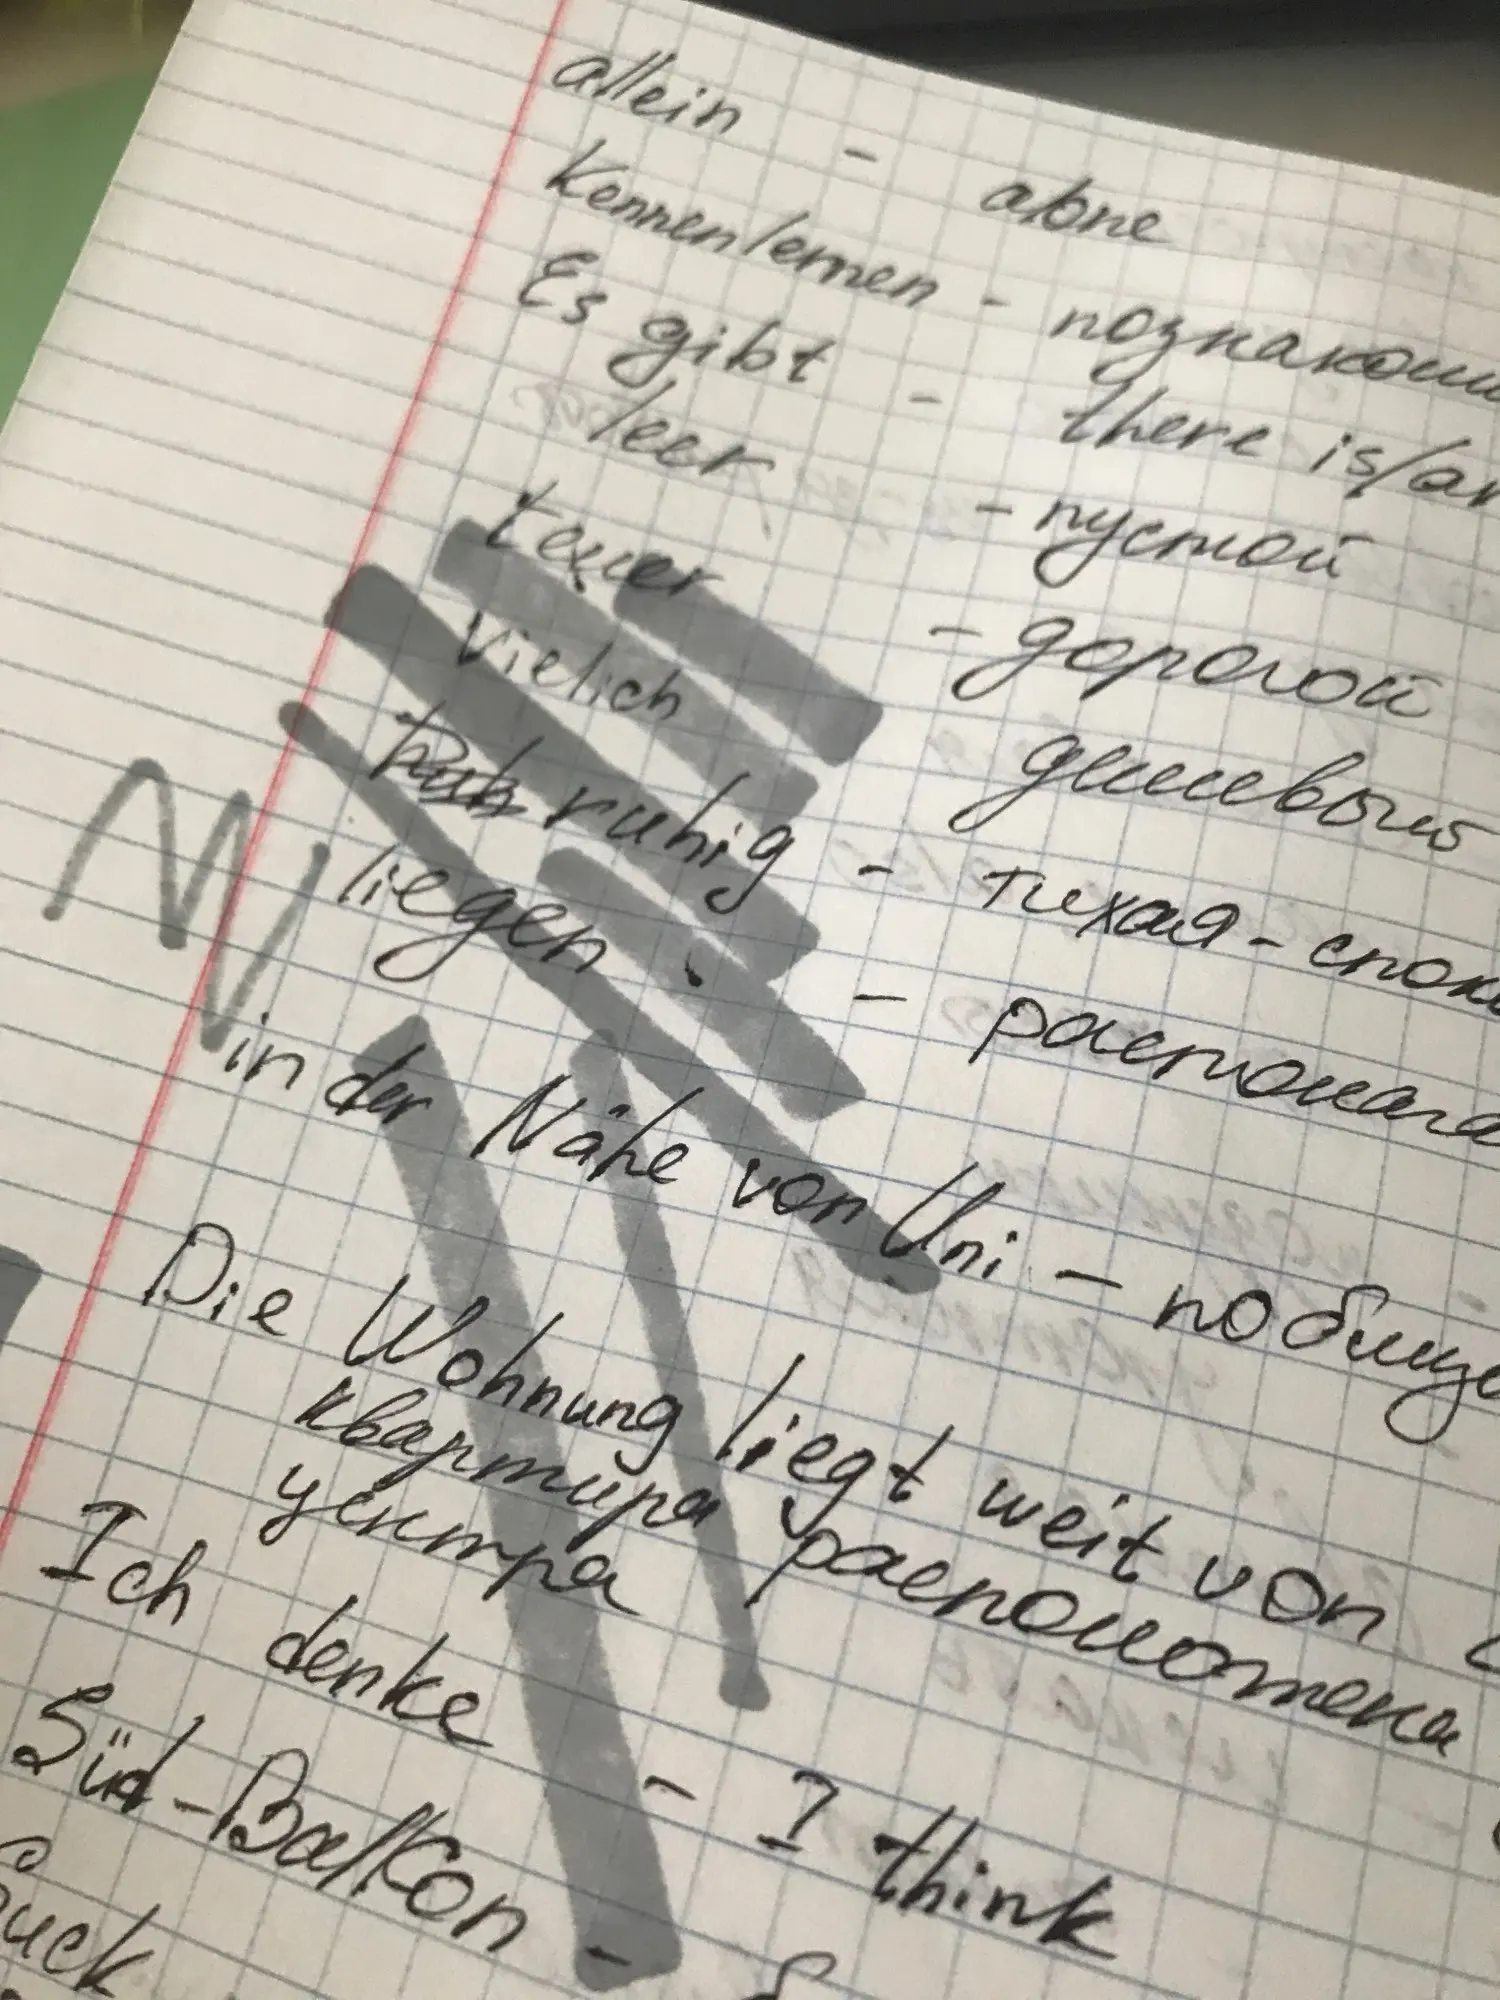 allein - alone
Kennenlernen - познаком
Es gibt - there is/ar
leer - пустой
teuer - дорогой
vielich дешевый
ruhig - тихая - спок
liegen - располага
in der Nähe von Uni - поблизо
Die Wohnung liegt weit von
квартира расположена
центра
Ich denke - I think
Süd-Balkon -